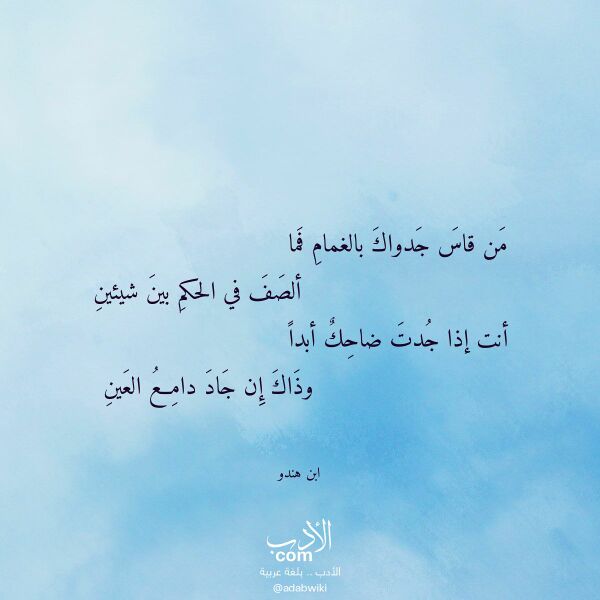 مَن قاسَ جَدواكَ بالغمامِ فَما
ألصَفَ في الحكمِ بينَ شيئينِ
أنت إذا جُدتَ ضاحِكٌ أبداً
وذَاكَ إِن جَادَ دامِعُ العَينِ
ابن هندو
الأدب
com
الأدب .. بلغة عربية
@adabwiki